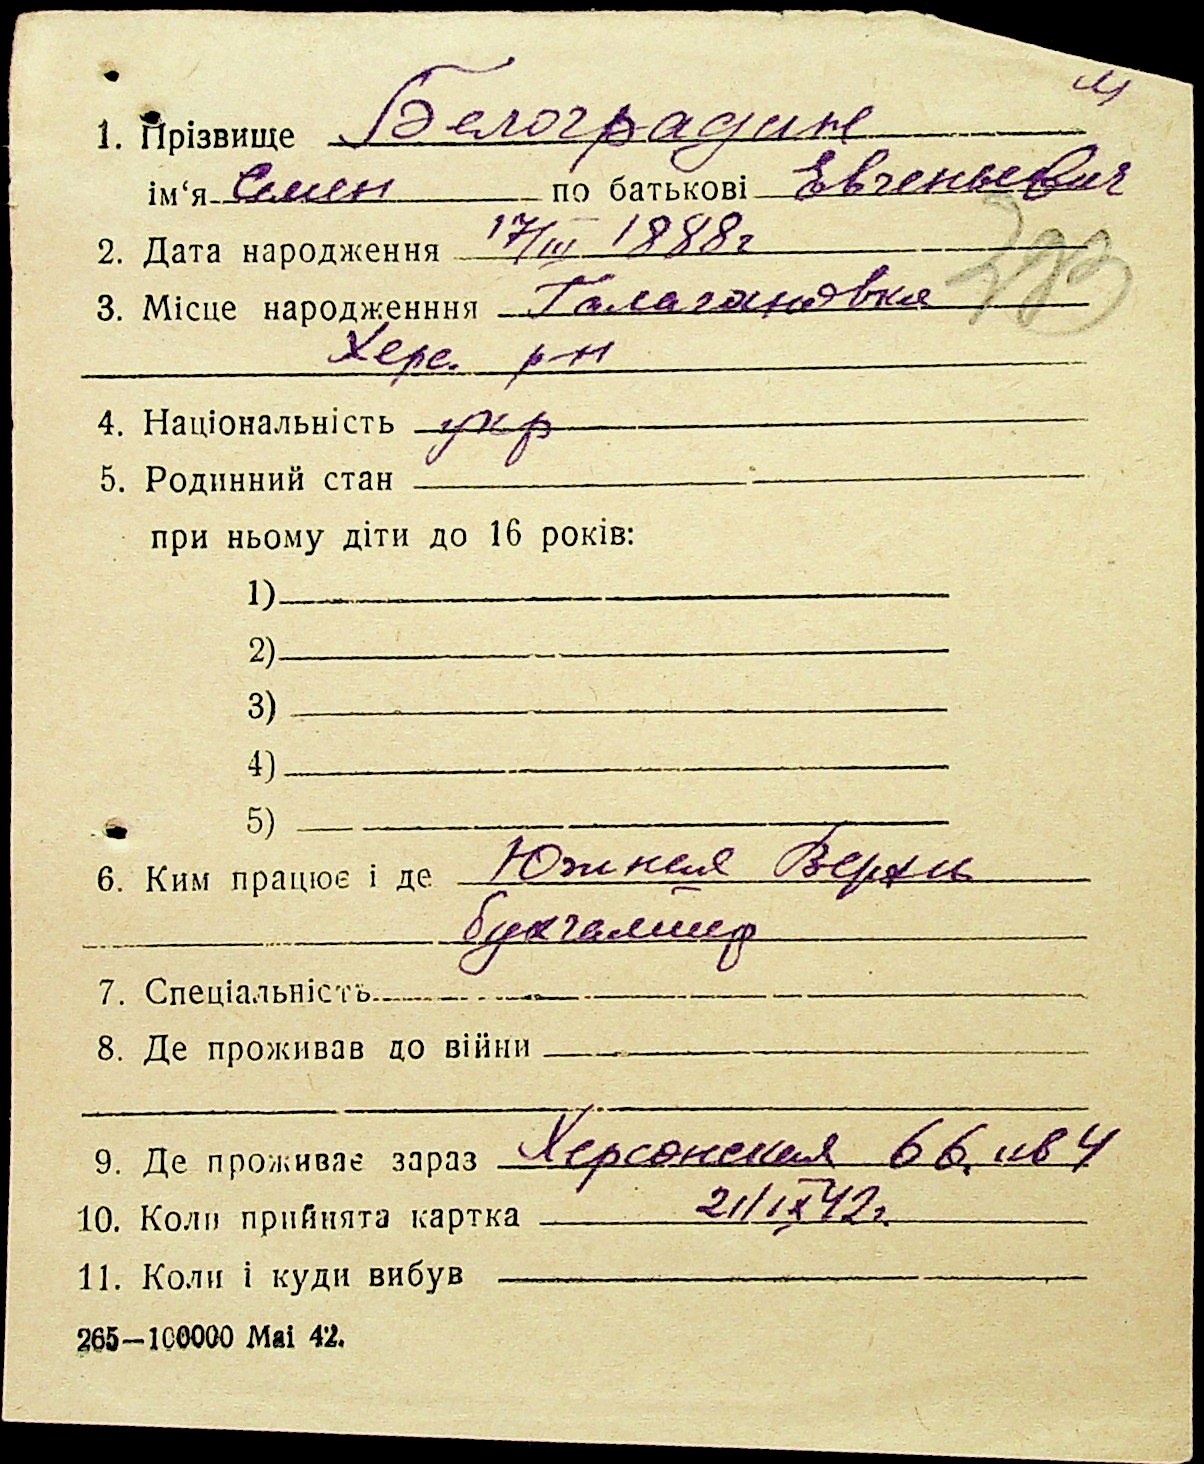 1. Прізвище Белоградин
ім‘я Семен по батькові Евченьевич
2. Дата народження 17/III 1888г
3. Місце народженння Галагановка
Херс. р-н
4. Національність укр
5. Родинний стан
при ньому діти до 16 років:
1)
2)
3)
4)
5)
6. Ким працює і де Южная Верхн
бухгалтер
7. Спеціальність
8. Де проживав до війни
9. Де проживає зараз Херсонская 66. кв 4
10. Коли прийнята картка 21/IX 42г.
11. Коли і куди вибув
265—100000 Mai 42.